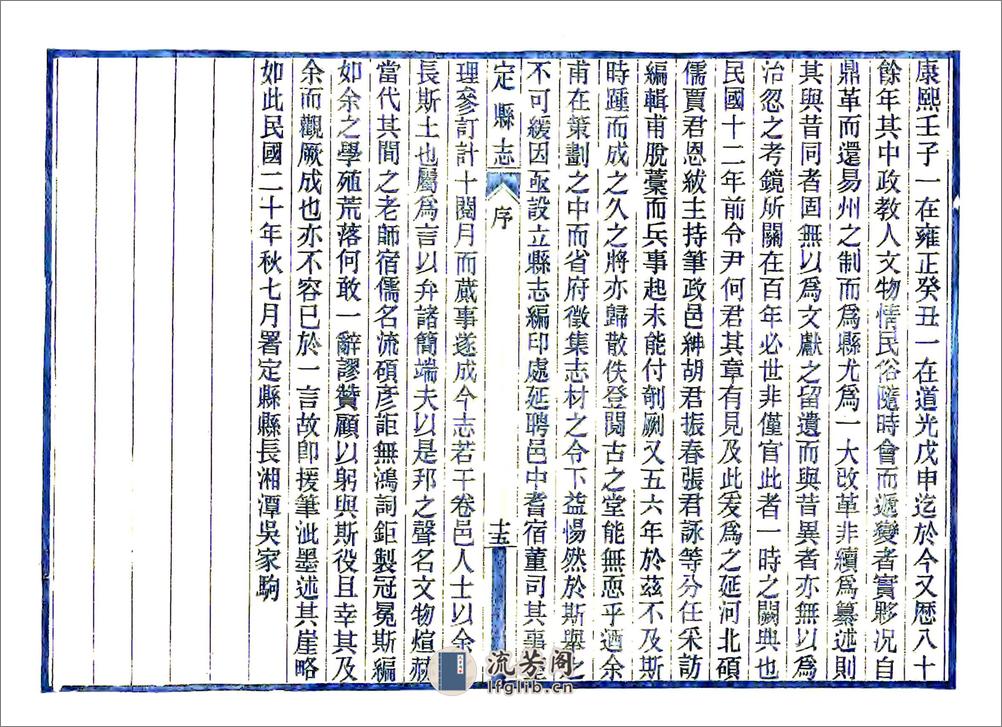 康熙壬子一在雍正癸丑一在道光戊申迄於今又歷八十
餘年其中政教人文物情民俗隨時會而遞變者實夥況自
鼎革而還易州之制而爲縣尤爲一大改革非續爲纂述則
其與昔同者固無以爲文獻之留遺而與昔異者亦無以爲
治忽之考鏡所關在百年必世非僅官此者一時之闕典也
民國十二年前令尹何君其章有見及此爰爲之延河北碩
儒賈君恩紱主持筆政邑紳胡君振春張君詠等分任采訪
編輯甫脫稾而兵事起未能付剞劂又五六年於茲不及斯
時踵而成之久之將亦歸散佚登閱古之堂能無恧乎迺余
甫在策劃之中而省府徵集志材之令下益惕然於斯舉之
不可緩因亟設立縣志編印處延聘邑中耆宿董司其事
定縣志
序
十五
理參訂計十閱月而蕆事遂成今志若干卷邑人士以余
長斯土也屬爲言以弁諸簡端夫以是邦之聲名文物煊赫
當代其間之老師宿儒名流碩彥詎無鴻詞鉅製冠冕斯編
如余之學殖荒落何敢一辭謬贊顧以躬與斯役且幸其及
余而觀厥成也亦不容已於一言故卽援筆泚墨述其崖略
如此民國二十年秋七月署定縣縣長湘潭吳家駒
流芳阁
lfglib.cn